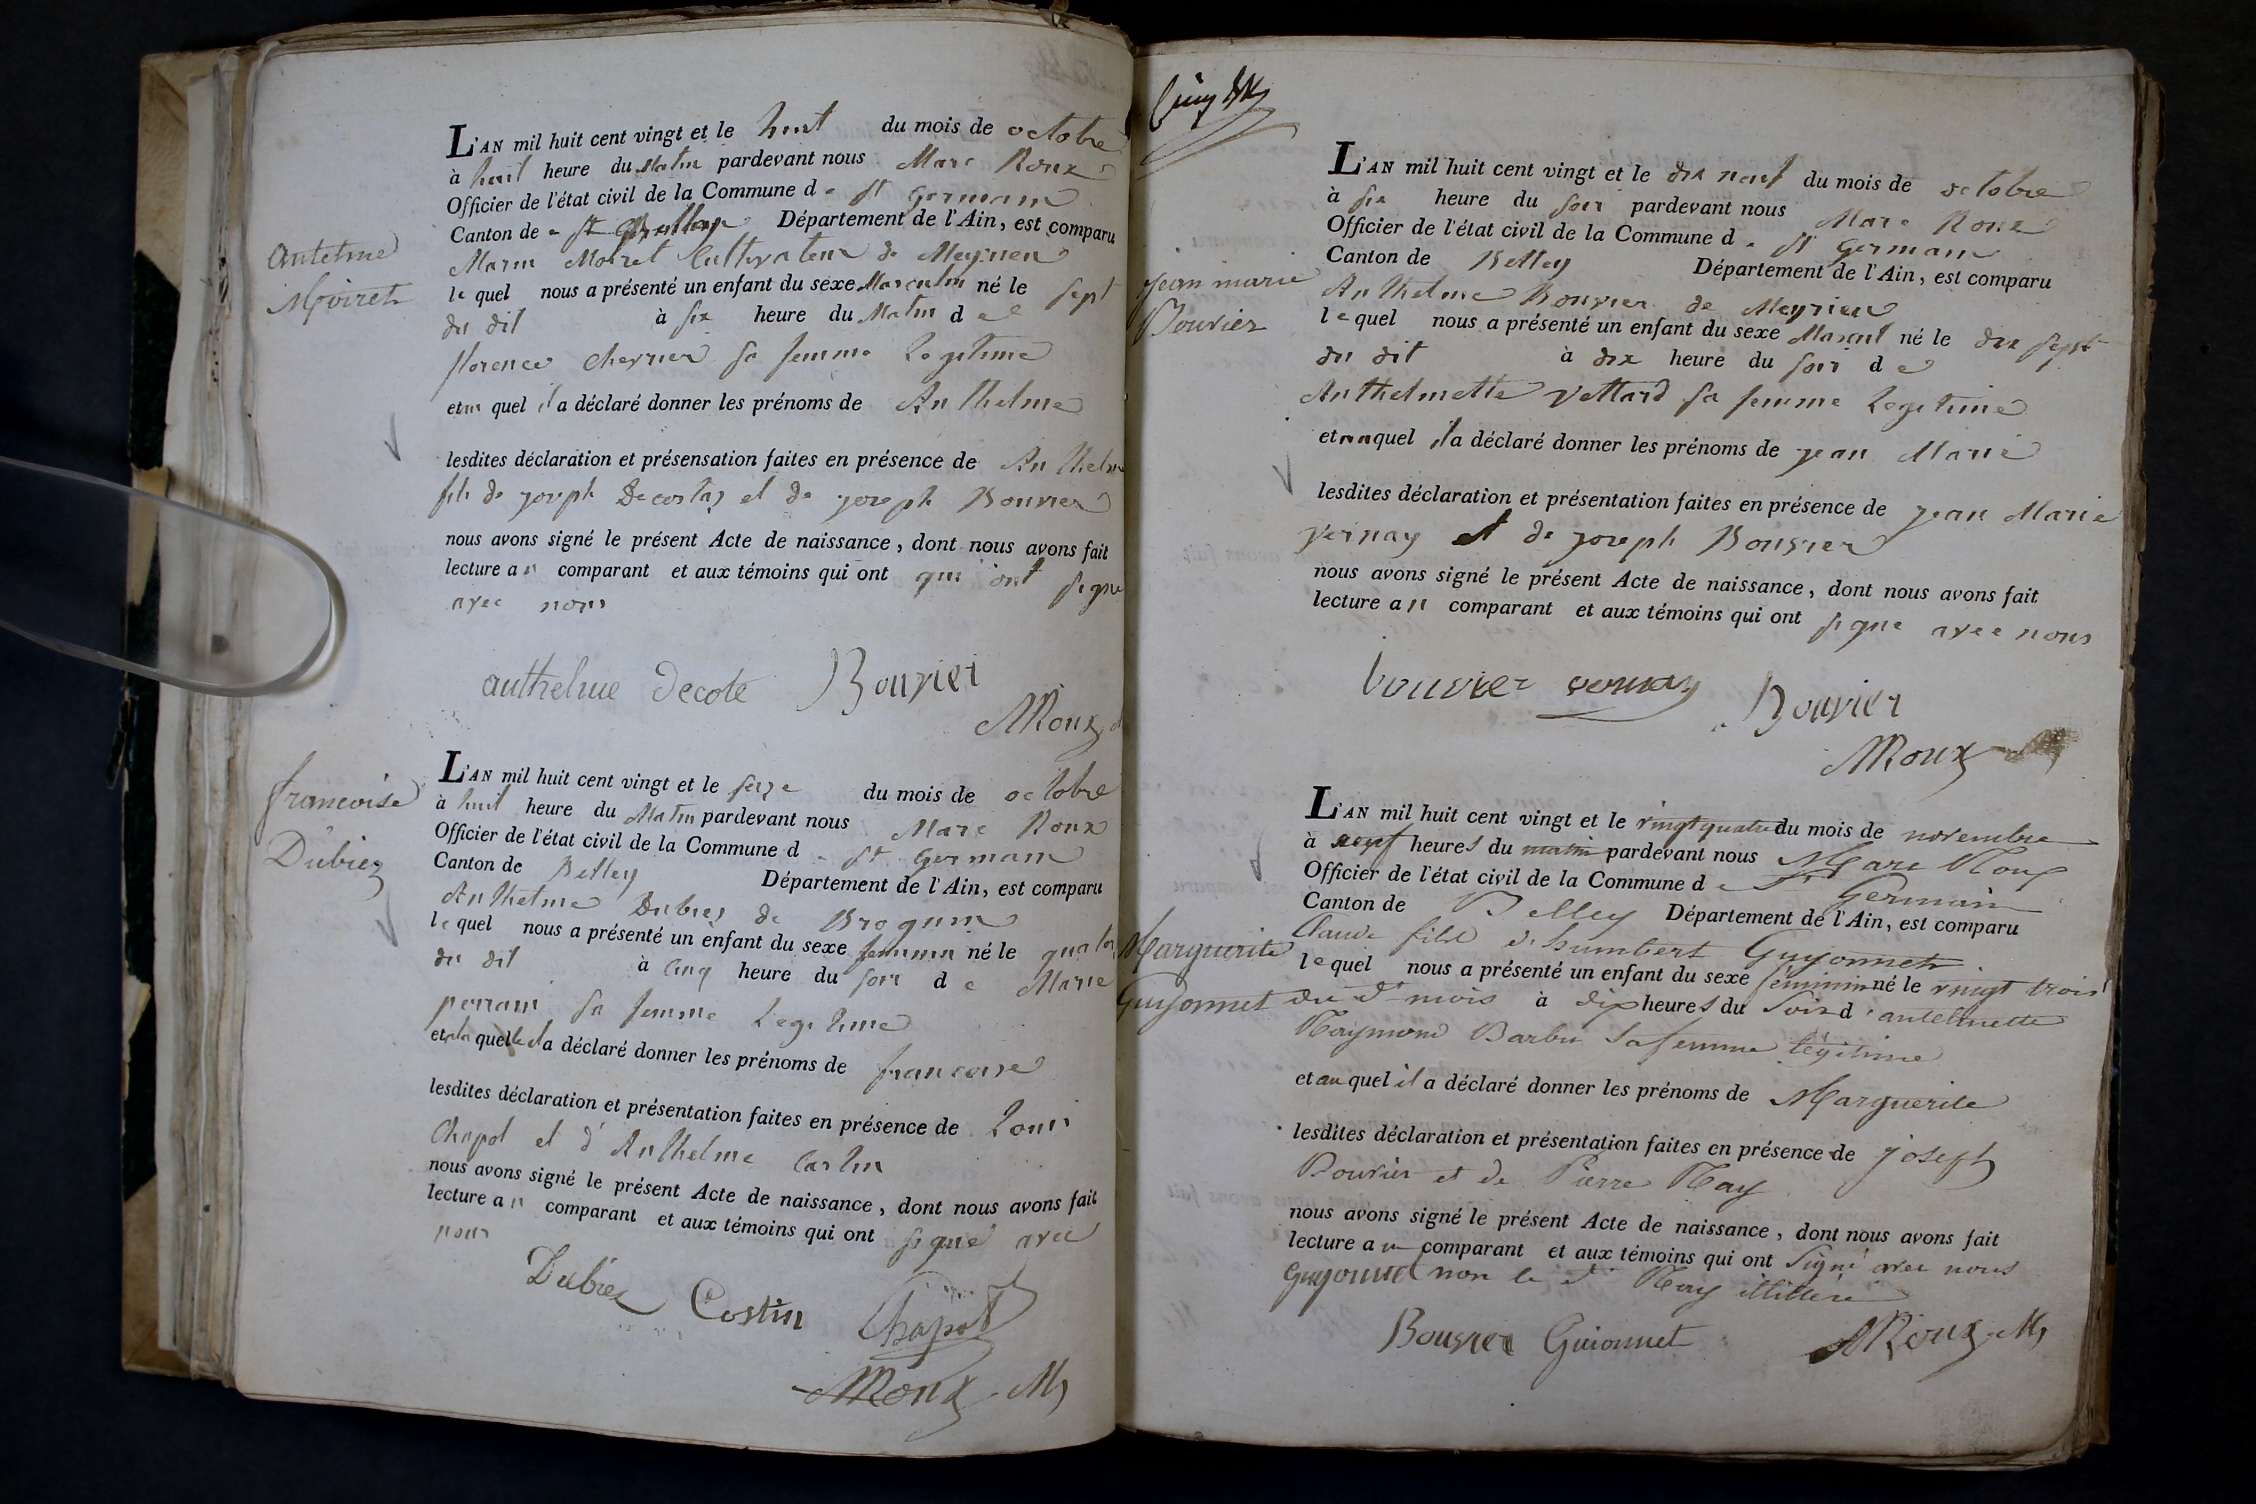 L'AN mil huit cent vingt et le huit du mois de octobre
à huit heure du Matin pardevant nous Marc Roux
Officier de l'état civil de la Commune d e st germain
Canton de Belley Département de l'Ain, est comparu
Antelme
Moiret
Marin Moiret Cultivateur de Meyrieu
le quel nous a présenté un enfant du sexe Masculin né le sept
du dit à six heure du Matin d e
florence chevrier sa femme Legitime
et au quel il a déclaré donner les prénoms de Anthelme
lesdites déclaration et présensation faites en présence de Anthelme
fils de joseph Decostaz et de joseph Bouvier
nous avons signé le présent Acte de naissance, dont nous avons fait
lecture au comparant et aux témoins qui ont qui ont signe
avec nous
anthelme Decote Bouvier
MRoux
francoise
Dubiez
L'AN mil huit cent vingt et le seize du mois de octobre
à huit heure du Matin pardevant nous Marc Roux
Officier de l'état civil de la Commune d e st germain
Canton de Belley Département de l'Ain, est comparu
Anthelme Dubiez de Brognin
le quel nous a présenté un enfant du sexe feminin né le quator
du dit à Cinq heure du soir d e Marie
perrain sa femme Legitime
et a la quelle il a déclaré donner les prénoms de francoise
lesdites déclaration et présentation faites en présence de Louis
Chapot et d'Anthelme Costin
nous avons signé le présent Acte de naissance, dont nous avons fait
lecture au comparant et aux témoins qui ont signé avec
nous
Dubiez Costin Chapot
MRoux M
L'AN mil huit cent vingt et le dix neuf du mois de octobre
à six heure du soir pardevant nous Marc Roux
Officier de l'état civil de la Commune d e st Germain
Canton de Belley Département de l'Ain, est comparu
jean marie
Bouvier
Anthelme Bouvier de Meyrieu
le quel nous a présenté un enfant du sexe Mascul né le dix sept
du dit à dix heure du soir d e
Anthelmette Vettard sa femme Legitime
et au quel il a déclaré donner les prénoms de jean Marie
lesdites déclaration et présentation faites en présence de jean Marie
vernay et de joseph Bouvier
nous avons signé le présent Acte de naissance, dont nous avons fait
lecture au comparant et aux témoins qui ont signe avec nous
bouvier vernay Bouvier
MRoux
L'AN mil huit cent vingt et le vingt quatre du mois de novembre
à neuf heures du matin pardevant nous Marc Roux
Officier de l'état civil de la Commune d e St Germain
Canton de Belley Département de l'Ain, est comparu
Marguerite
Guyonnet
Claude fils d'humbert Guyonnet
le quel nous a présenté un enfant du sexe féminin né le vingt trois
du dt mois à dix heures du Soir d'antelmette
Raymond Barbu sa femme légitime
et au quel il a déclaré donner les prénoms de Marguerite
lesdites déclaration et présentation faites en présence de joseph
Bouvier et de Pierre Ray
nous avons signé le présent Acte de naissance, dont nous avons fait
lecture au comparant et aux témoins qui ont Signé avec nous
Guyonnet non le dt Ray illitéré
Bouvier Guionnet MRoux M